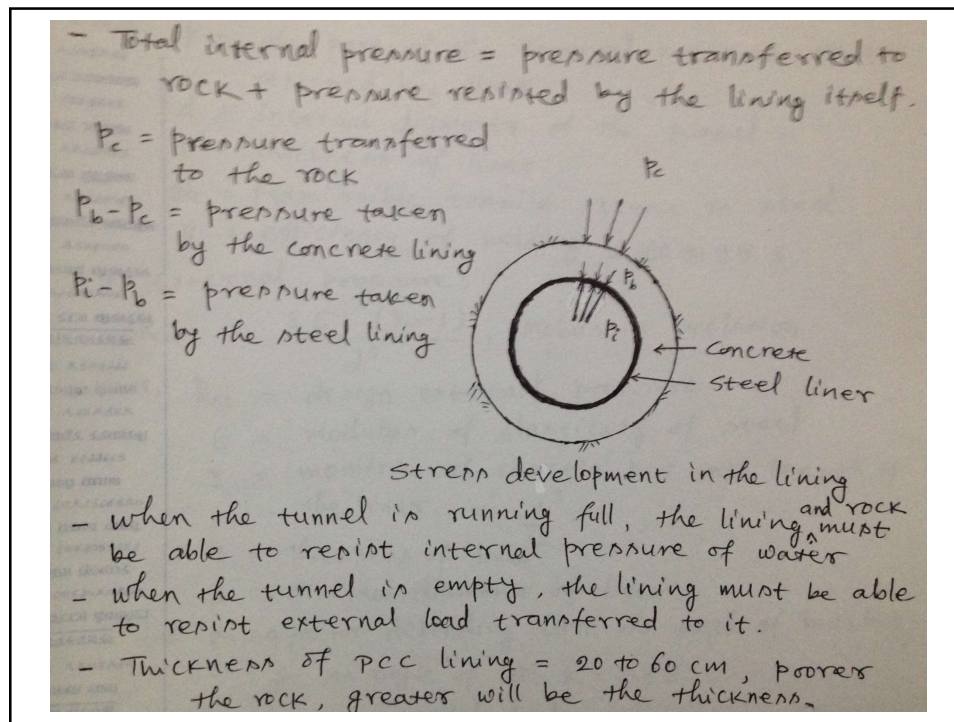 - Total internal pressure = pressure transferred to
rock + pressure resisted by the lining itself.
Pc = pressure transferred
to the rock
Pb-Pc = pressure taken
by the concrete lining
Pi-Pb = pressure taken
by the steel lining
Pc
Pb
Pi
Concrete
Steel liner
stress development in the lining
- when the tunnel is running full, the lining and rock must
be able to resist internal pressure of water
- when the tunnel is empty, the lining must be able
to resist external load transferred to it.
- Thickness of PCC lining = 20 to 60 cm, poorer
the rock, greater will be the thickness.